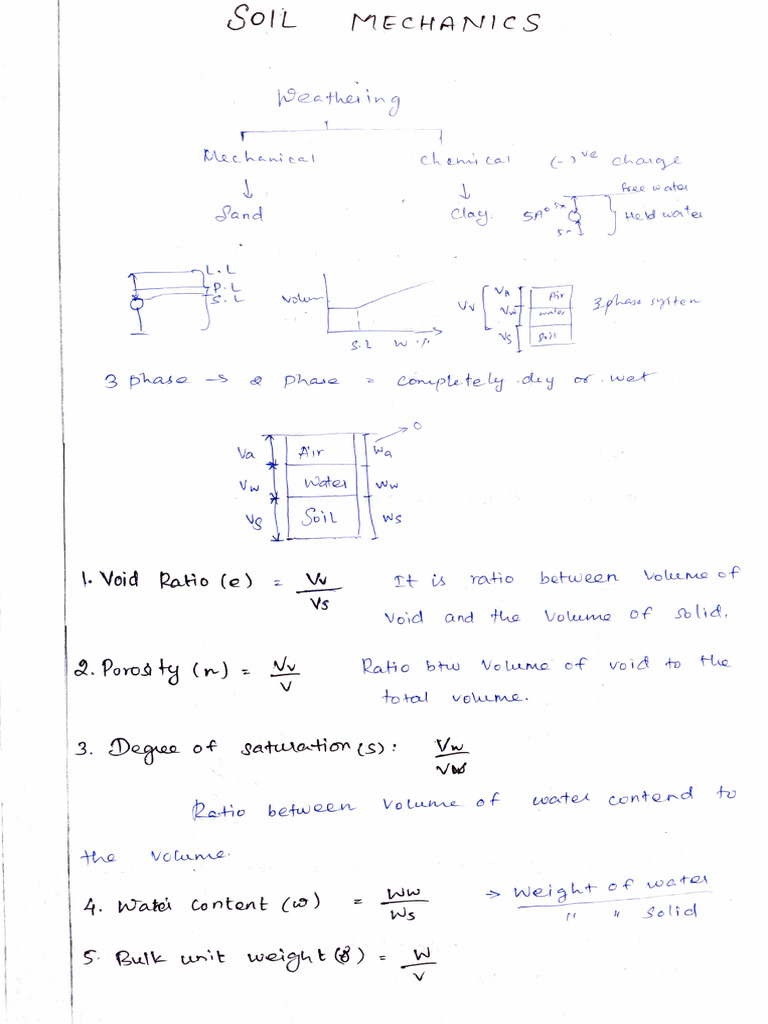 SOIL MECHANICS
Weathering
Mechanical Chemical (-)ve charge
Sand Clay. 5A° 5A free water
Held water
L.L
P.L
S.L
Volum
S.L W %
Vv VA Vw Vs
Air
water
Soil
3 phase system
3 phase → 2 phase = completely dry or wet
Va Air Wa → 0
Vw Water Ww
Vs Soil Ws
1. Void Ratio (e) = Vv/Vs It is ratio between volume of
void and the volume of solid.
2. Porosity (n) = Vv/V Ratio btw volume of void to the
total volume.
3. Degree of saturation (s): Vw/Vv
Ratio between volume of water contend to
the volume.
4. Water content (w) = Ww/Ws → Weight of water
" " solid
5. Bulk unit weight (γ) = W/V